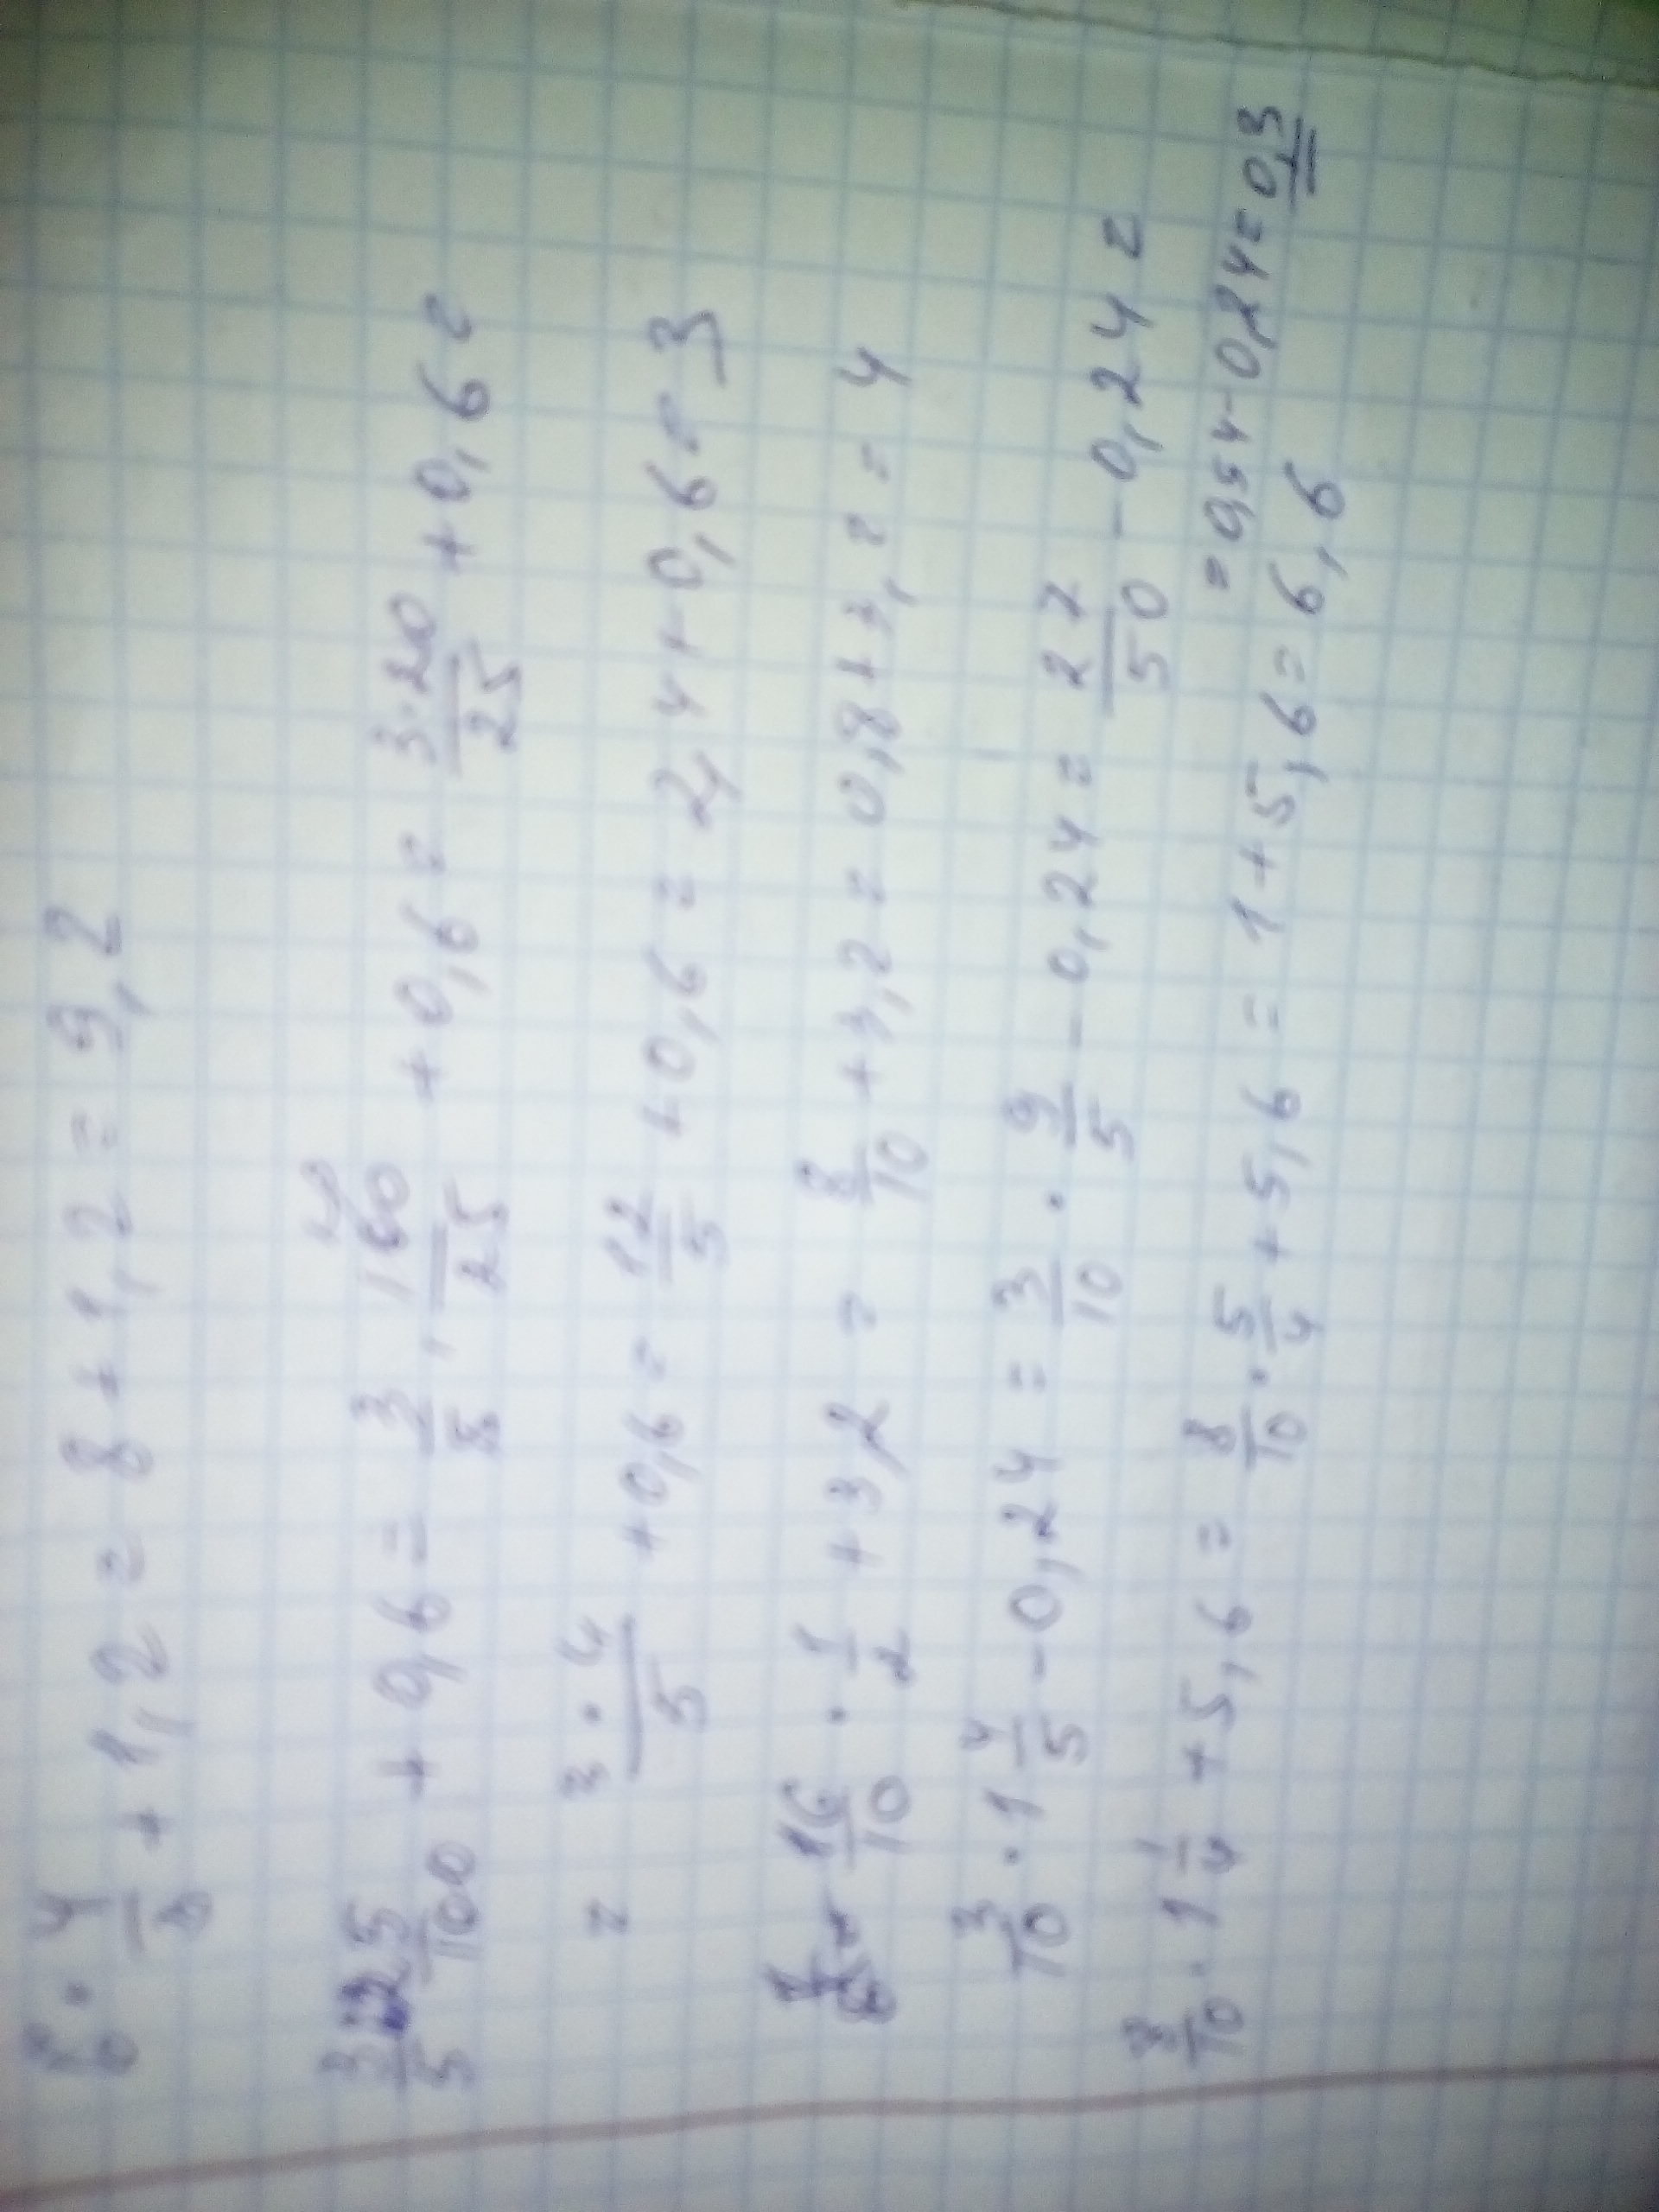 + 1,2 = 8 + 1,2 = 9,2
3/5 : 25/100 + 0,6 = 3/5 · 100/25 + 0,6 = 3·20/25 + 0,6 =
= 3·4/5 + 0,6 = 12/5 + 0,6 = 2,4 + 0,6 = 3
16/10 · 1/2 + 3,2 = 8/10 + 3,2 = 0,8 + 3,2 = 4
3/10 · 1 4/5 - 0,24 = 3/10 · 9/5 - 0,24 = 27/50 - 0,24 =
= 0,54 - 0,24 = 0,3
8/10 · 1 1/4 + 5,6 = 8/10 · 5/4 + 5,6 = 1 + 5,6 = 6,6